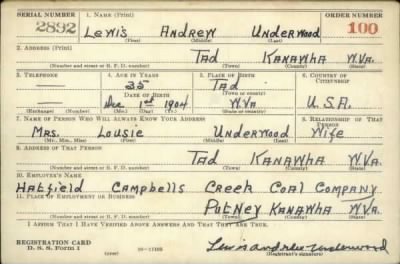 SERIAL NUMBER 1. NAME (Print) ORDER NUMBER
2892 Lewis Andrew Underwood 100
(First) (Middle) (Last)
2. ADDRESS (Print)
Tad Kanawha W.Va.
(Number and street or R. F. D. number) (Town) (County) (State)
3. TELEPHONE 4. AGE IN YEARS 5. PLACE OF BIRTH 6. COUNTRY OF CITIZENSHIP
— 35 Tad
DATE OF BIRTH (Town or county)
— Dec 1st 1904 W.Va U.S.A.
(Exchange) (Number) (Mo.) (Day) (Yr.) (State or country)
7. NAME OF PERSON WHO WILL ALWAYS KNOW YOUR ADDRESS 8. RELATIONSHIP OF THAT PERSON
Mrs. Lousie Underwood Wife
(Mr., Mrs., Miss) (First) (Middle) (Last)
9. ADDRESS OF THAT PERSON
Tad Kanawha W.Va.
(Number and street or R. F. D. number) (Town) (County) (State)
10. EMPLOYER'S NAME
Hatfield Campbells Creek Coal Company
11. PLACE OF EMPLOYMENT OR BUSINESS
Putney Kanawha W.Va.
(Number and street or R. F. D. number) (Town) (County) (State)
I AFFIRM THAT I HAVE VERIFIED ABOVE ANSWERS AND THAT THEY ARE TRUE.
REGISTRATION CARD
D. S. S. Form 1 (over) Lewis Andrew Underwood
(Registrant's signature)